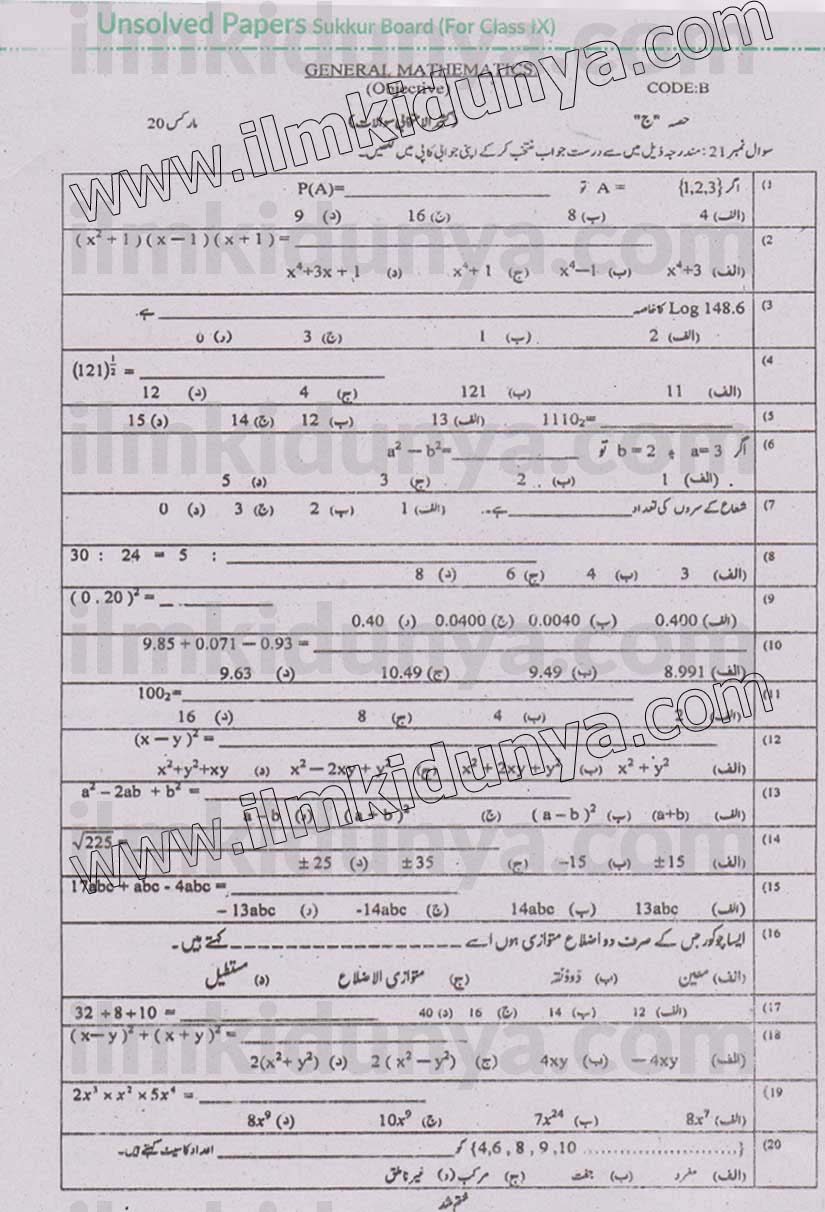 Unsolved Papers Sukkur Board (For Class IX)
GENERAL MATHEMATICS
(Objective) CODE:B
حصہ "ج" (کثیر الانتخابی سوالات) مارکس 20
سوال نمبر 21: مندرجہ ذیل میں سے درست جواب منتخب کر کے اپنی جوابی کاپی میں لکھیں۔
(1 اگر {1,2,3} = A تو P(A)=____________
(الف) 4 (ب) 8 (ج) 16 (د) 9
(2 ( x² + 1 ) ( x − 1 ) ( x + 1 ) = ____________
(الف) x⁴+3 (ب) x⁴−1 (ج) x⁴+ 1 (د) x⁴+3x + 1
(3 Log 148.6 کا خاصہ ____________ ہے۔
(الف) 2 (ب) 1 (ج) 3 (د) 0
(4 (121)^½ = ____________
(الف) 11 (ب) 121 (ج) 4 (د) 12
(5 1110₂= ____________ (الف) 13 (ب) 12 (ج) 14 (د) 15
(6 اگر a= 3 ، b = 2 تو a² − b²=____________
(الف) 1 (ب) 2 (ج) 3 (د) 5
(7 شعاع کے سروں کی تعداد ____________ ہے۔ (الف) 1 (ب) 2 (ج) 3 (د) 0
(8 30 : 24 = 5 : ____________
(الف) 3 (ب) 4 (ج) 6 (د) 8
(9 ( 0 . 20 )² = ____________
(الف) 0.400 (ب) 0.0040 (ج) 0.0400 (د) 0.40
(10 9.85 + 0.071 − 0.93 = ____________
(الف) 8.991 (ب) 9.49 (ج) 10.49 (د) 9.63
(11 100₂=____________
(الف) 2 (ب) 4 (ج) 8 (د) 16
(12 (x − y )² = ____________
(الف) x² + y² (ب) x² + 2xy + y² (ج) x² − 2xy + y² (د) x²+y²+xy
(13 a² − 2ab + b² = ____________
(الف) (a+b) (ب) ( a − b )² (ج) ( a + b )² (د) a − b
(14 √225 = ____________
(الف) ±15 (ب) -15 (ج) ±35 (د) ±25
(15 17abc + abc - 4abc = ____________
(الف) 13abc (ب) 14abc (ج) -14abc (د) − 13abc
(16 ایسا چوکور جس کے صرف دو اضلاع متوازی ہوں اسے ____________ کہتے ہیں۔
(الف) معین (ب) ذوذنقہ (ج) متوازی الاضلاع (د) مستطیل
(17 32 ÷ 8 + 10 = ____________ (الف) 12 (ب) 14 (ج) 16 (د) 40
(18 (x− y )² + ( x + y )² = ____________
(الف) − 4xy (ب) 4xy (ج) 2 ( x² − y²) (د) 2(x²+ y²)
(19 2x³ × x² × 5x⁴ = ____________
(الف) 8x⁷ (ب) 7x²⁴ (ج) 10x⁹ (د) 8x⁹
(20 {4,6 , 8 , 9 ,10 ........................} کو ____________ اعداد کا سیٹ کہتے ہیں۔
(الف) مفرد (ب) جفت (ج) مرکب (د) غیر ناطق
ختم شد
www.ilmkidunya.com
www.ilmkidunya.com
ilmkidunya.com
ilmkidunya.com
ilmkidunya.com
ilmkidunya.com
ilmkidunya.com
ilmkidunya.com